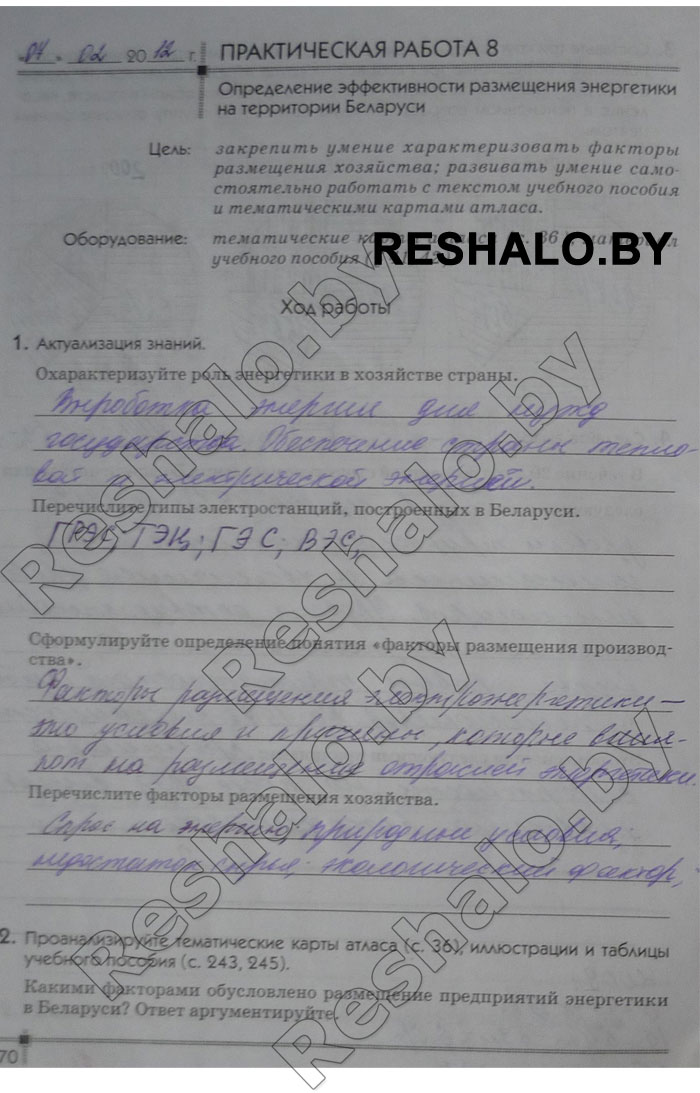 "04" 02 2012 г.
ПРАКТИЧЕСКАЯ РАБОТА 8
Определение эффективности размещения энергетики
на территории Беларуси
Цель: закрепить умение характеризовать факторы
размещения хозяйства; развивать умение само-
стоятельно работать с текстом учебного пособия
и тематическими картами атласа.
Оборудование: тематические карты атласа (с. 36),
учебного пособия
RESHALO.BY
Ход работы
1. Актуализация знаний.
Охарактеризуйте роль энергетики в хозяйстве страны.
Выроботка энергии для нужд
государства. Обеспечание страны тепло-
вой и электрической энергией.
Перечислите типы электростанций, построенных в Беларуси.
ГРЭС, ТЭЦ; ГЭС; ВЭС,
Сформулируйте определение понятия «факторы размещения производ-
ства».
Факторы размещения электроэнергетики –
это условия и причины, которые влия-
ют на размещение отраслей энергетики.
Перечислите факторы размещения хозяйства.
Спрос на энергию, природные условия;
недостаток сырья; экологический фактор,
2. Проанализируйте тематические карты атласа (с. 36), иллюстрации и таблицы
учебного пособия (с. 243, 245).
Какими факторами обусловлено размещение предприятий энергетики
в Беларуси? Ответ аргументируйте.
70
Reshalo.by
Reshalo.by
Reshalo.by
Reshalo.by